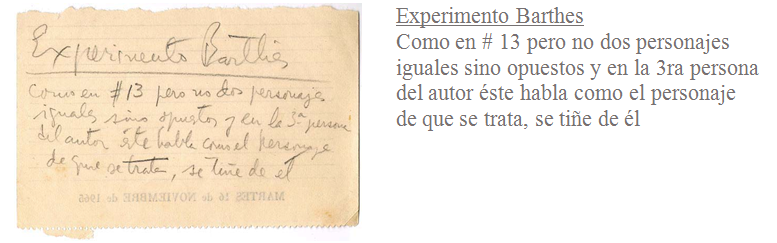 Experimento Barthes
Como en # 13 pero no dos personajes
iguales sino opuestos y en la 3ª persona
del autor éste habla como el personaje
de que se trata, se tiñe de él
MARTES 16 de NOVIEMBRE de 1965
Experimento Barthes
Como en # 13 pero no dos personajes
iguales sino opuestos y en la 3ra persona
del autor éste habla como el personaje
de que se trata, se tiñe de él